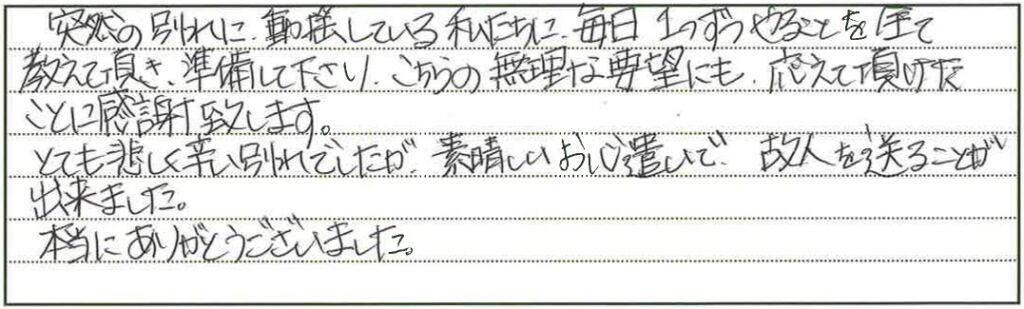 突然の別れに、動揺している私たちに、毎日1つずつやることを全て
教えて頂き、準備して下さり、こちらの無理な要望にも、応えて頂けた
ことに感謝致します。
とても悲しく辛い別れでしたが、素晴しいお心遣いで、故人を送ることが
出来ました。
本当にありがとうございました。